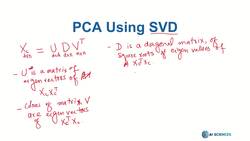 PCA Using SVD
X_c = U D V^T
d×n d×d d×n n×n
- U is a matrix of
eigen vectors of
X_c X_c^T
- Cols of matrix V
are eigen vectors
of X_c^T X_c
- D is a diagonal matrix, of
square roots of eigen values of
X_c^T X_c
AI SCIENCES